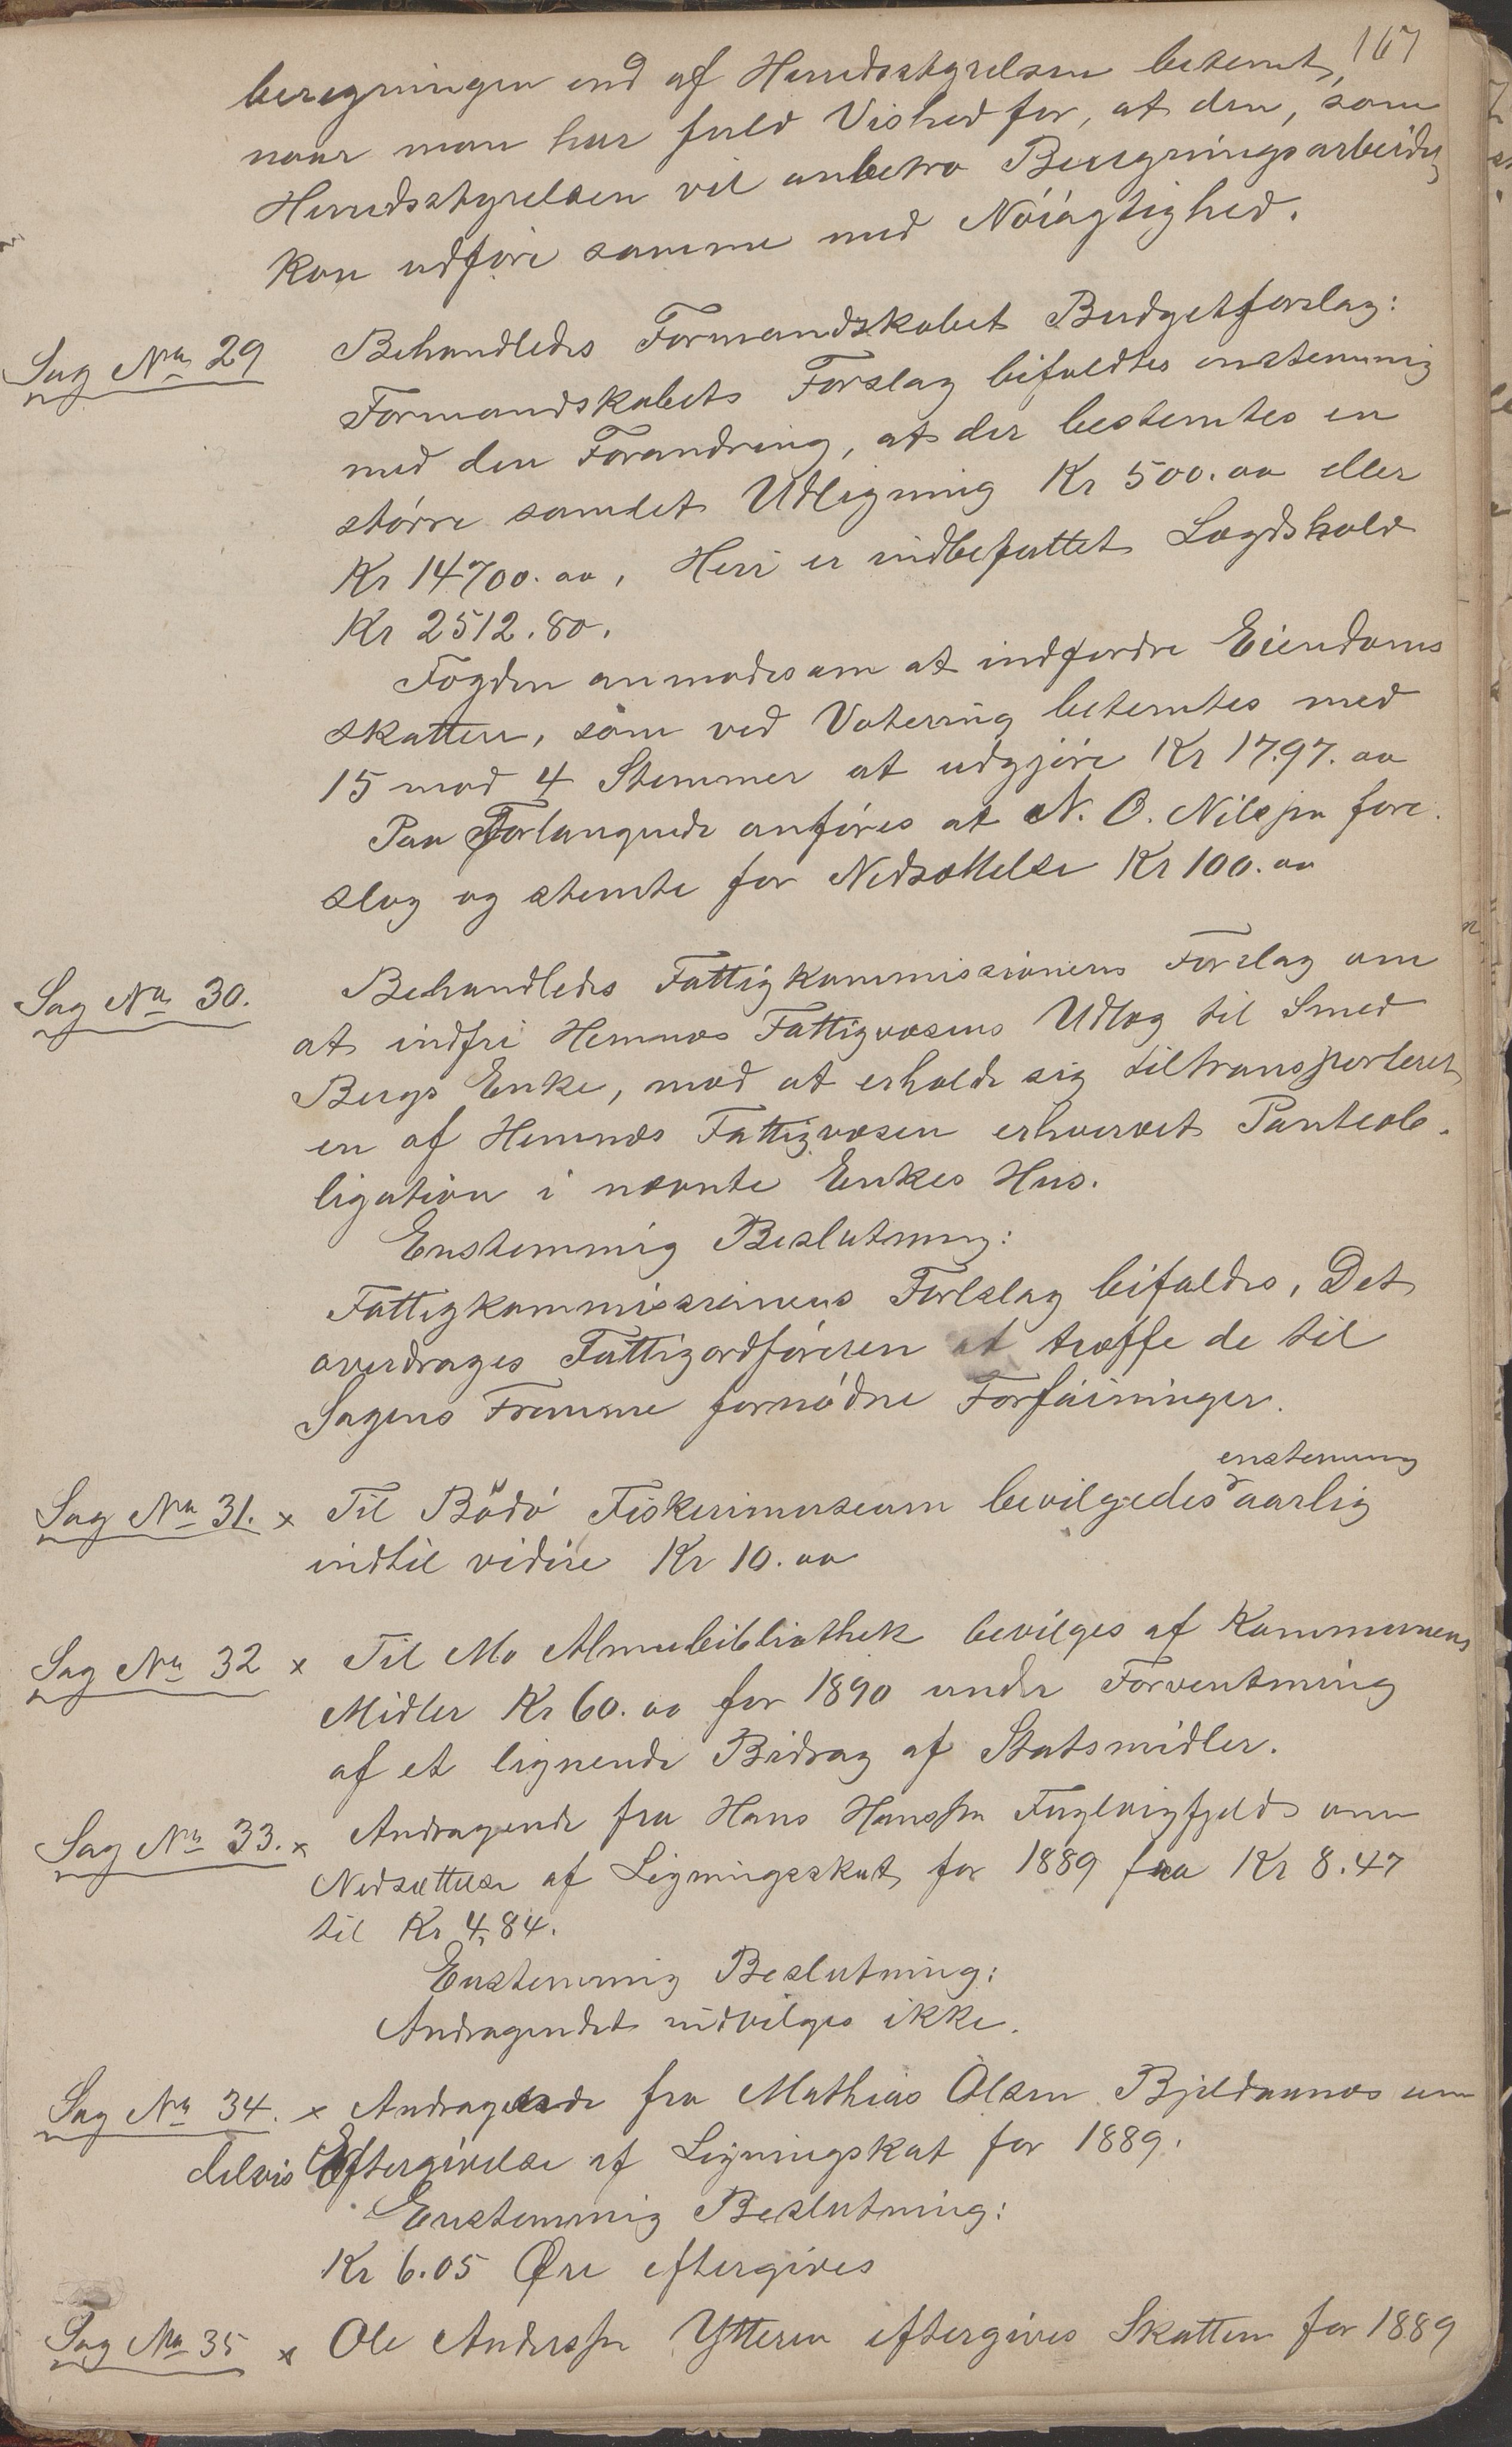 167
beregningen end af Herredsstyrelsen betemt,
naar man har fuld Vished for, at den, som
Herredsstyrelsen vil anbetro Beregningsarbeidet
kan udføre samme med Nöiagtighed.
Sag No 29 Behandledes Formandskabet Budgetforslag:
Formandskabets Forslag bifaldtes enstemmig
med den Forandring, at der bestemtes en
större samlet Udligning Kr 500.00 eller
Kr 14700.00, Heri er indbefattet Lægdshold
Kr 2512.80.
Fogden anmodes om at indfordre Eiendoms
skatten, som ved Votering betemtes med
15 mod 4 Stemmer at udgjöre Kr 1797.00
Paa Forlangende anföres at N. O. Nilsen fore.
slog og stemte for Nedsættelse Kr 100.00
Sag No 30. Behandledes Fattigkommissionens Forslag om
at indfri Hemnæs Fattigvæsens Udlæg til Smed
Bergs Enke, mod at erholde sig tiltransporteret
en af Hemnæs Fattigvæsen erhvervet Panteob-
ligation i nævnte Enkes Hus.
Enstemmig Beslutning:
Fattigkommissionens Forslag bifaldes. Det
overdrages Fattigordföreren at træffe de til
Sagens Fremme fornödne Forföininger.
enstemmig
Sag No 31. x Til Bodö Fiskerimuseum bevilgedes aarlig
indtil videre Kr 10.00
Sag No 32 x Til Mo Almuebibliothek bevilges af Kommunens
Midler Kr 60.00 for 1890 under Forventning
af et lignende Bidrag af Statsmidler.
Sag No 33. x Andragende fra Hans Hanssen Fuglevigfjeld om
Nedsættelse af Ligningsskat for 1889 fra Kr 8.47
til Kr 4,84.
Enstemmig Beslutning:
Andragendet indvilges ikke.
Sag No 34. x Andragende fra Mathias Olsen Bjeldaanæs om
delvis Eftergivelse af Ligningskat for 1889.
Enstemmig Beslutning:
Kr 6.05 Øre eftergives
Sag No 35 x Ole Anderssen Ytteren eftergives Skatten for 1889